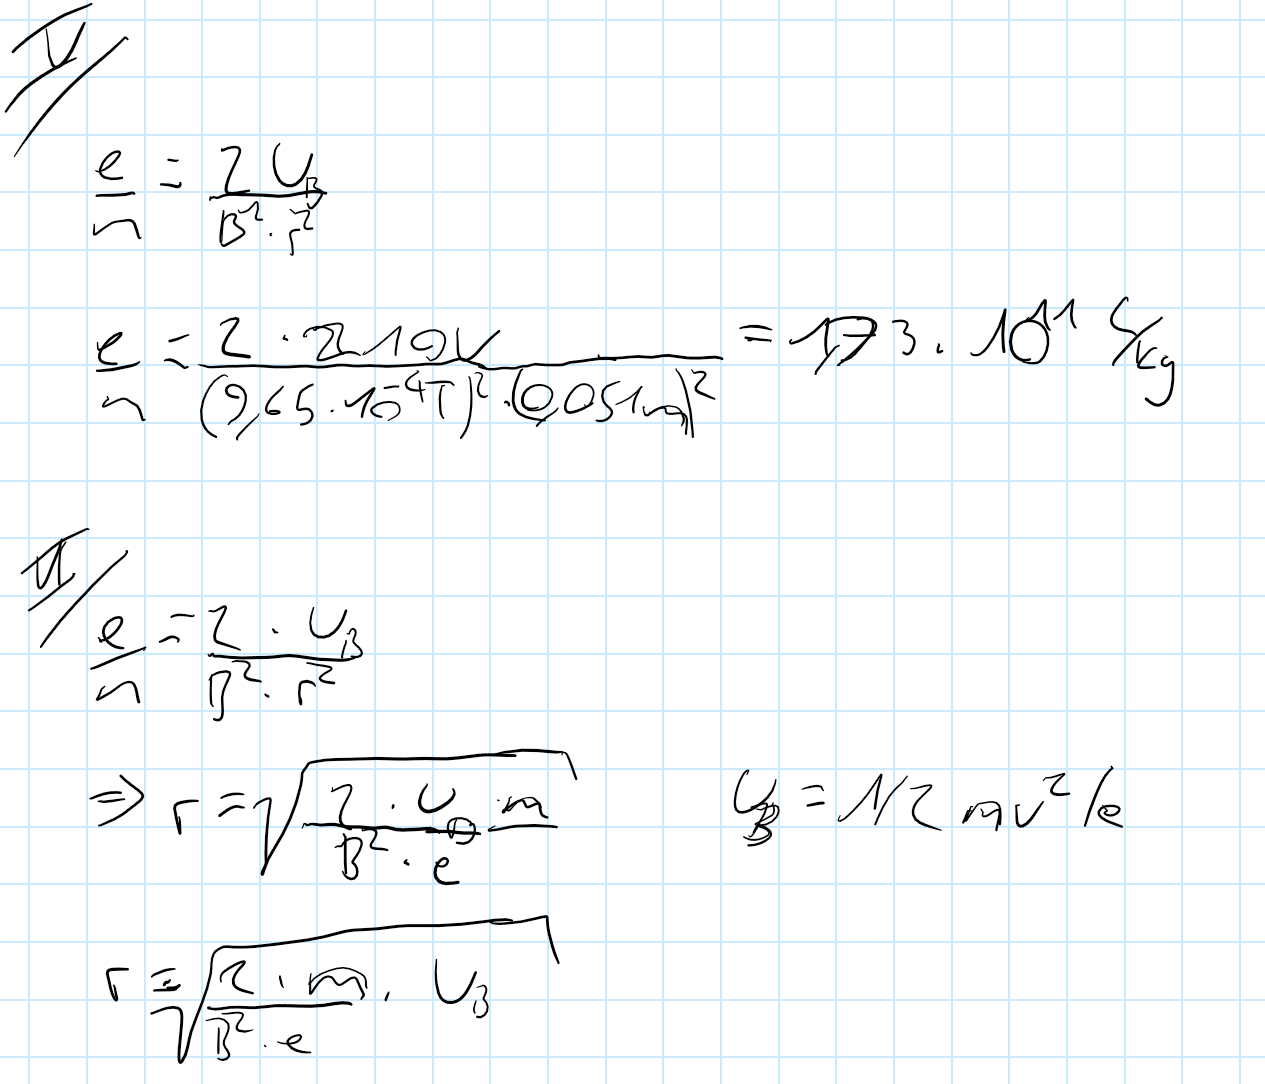 V/
e/m = 2 U_B / B² · r²
e/m = 2 · 210V / (9,65 · 10⁻⁴T)² · (0,051m)² = 1,73 · 10¹¹ C/kg
VI/
e/m = 2 · U_B / B² · r²
⇒ r = √(2 · U_B · m / B² · e) U_B = 1/2 mv²/e
r = √(2 · m / B² · e · U_B)